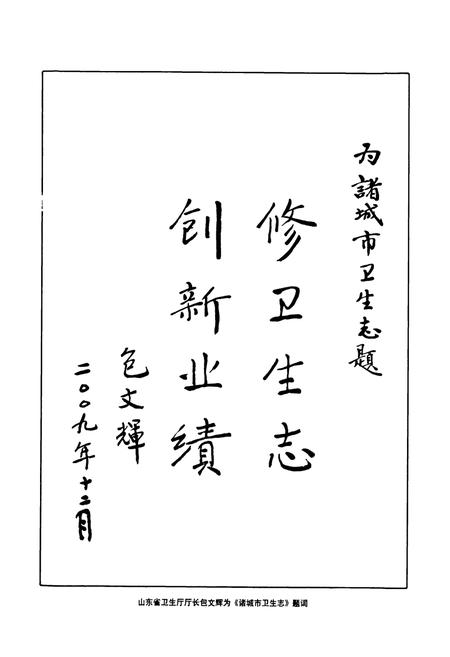 为諸城市卫生志题
修卫生志
创新业績
包文輝
二〇〇九年十二月
山东省卫生厅厅长包文辉为《诸城市卫生志》题词